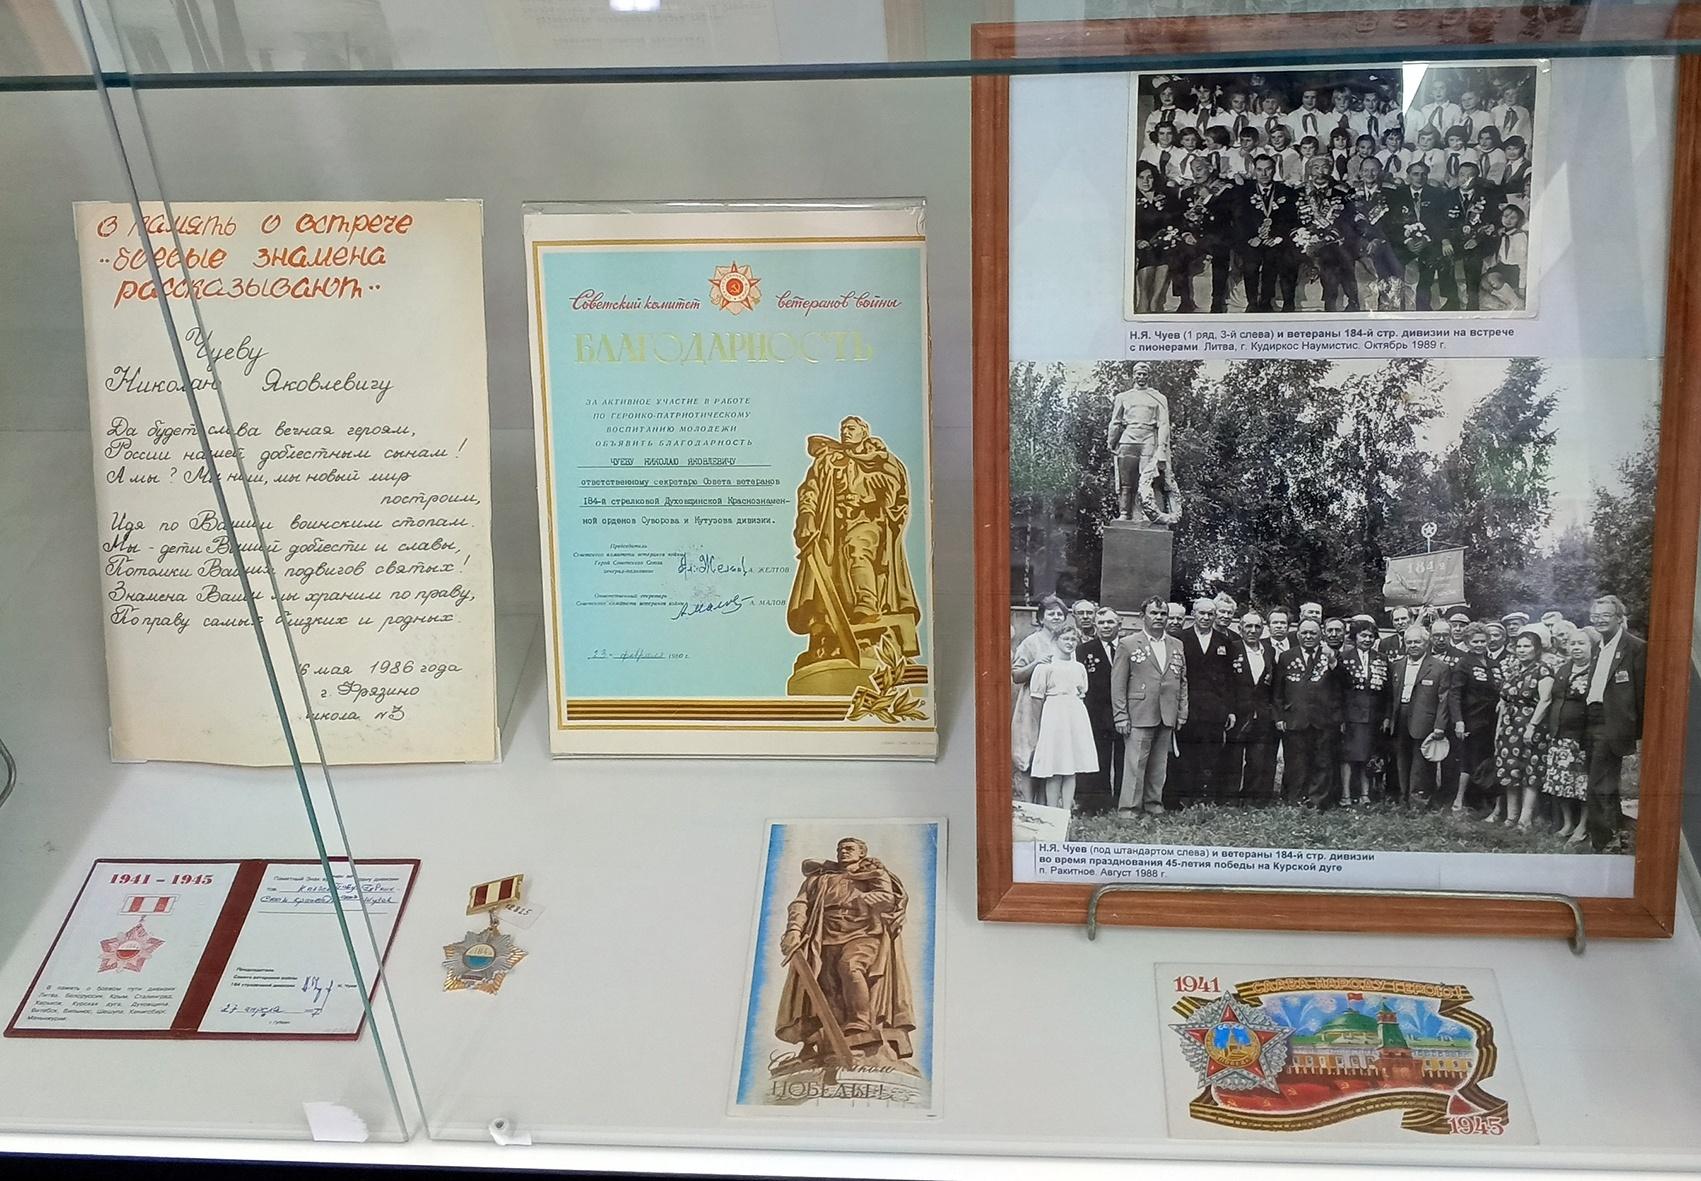 В память о встрече
"боевые знамена
рассказывают"
Чуеву
Николаю Яковлевичу
Да будет слава вечная героям,
России нашей доблестным сынам!
А мы? Мы наш, мы новый мир
построим,
Идя по Вашим воинским стопам.
Мы - дети Вашей доблести и славы,
Потомки Ваших подвигов святых!
Знамена Ваши мы храним по праву,
По праву самых близких и родных.
6 мая 1986 года
г. Фрязино
школа №3
Советский комитет ветеранов войны
БЛАГОДАРНОСТЬ
ЗА АКТИВНОЕ УЧАСТИЕ В РАБОТЕ
ПО ГЕРОИКО-ПАТРИОТИЧЕСКОМУ
ВОСПИТАНИЮ МОЛОДЕЖИ
ОБЪЯВИТЬ БЛАГОДАРНОСТЬ
ЧУЕВУ НИКОЛАЮ ЯКОВЛЕВИЧУ
ответственному секретарю Совета ветеранов
184-й стрелковой Духовщинской Краснознамен-
ной орденов Суворова и Кутузова дивизии.
Председатель
Советского комитета ветеранов войны
Герой Советского Союза
генерал-полковник
А. ЖЕЛТОВ
Ответственный секретарь
Советского комитета ветеранов войны
А. МАЛОВ
23 февраля 1980 г.
Н.Я. Чуев (1 ряд, 3-й слева) и ветераны 184-й стр. дивизии на встрече
с пионерами. Литва, г. Кудиркос Наумистис. Октябрь 1989 г.
184 я
Н.Я. Чуев (под штандартом слева) и ветераны 184-й стр. дивизии
во время празднования 45-летия победы на Курской дуге
п. Ракитное. Август 1988 г.
1941 – 1945
В память о боевом пути дивизии
Литва, Белоруссия, Крым, Сталинград,
Харьков, Курская дуга, Духовщина,
Витебск, Вильнюс, Шешупа, Кенигсберг,
Маньчжурия.
Памятный Знак
дивизии
тов.
Председатель
Совета ветеранов войны
184 стрелковой дивизии
27 апреля
184
ПОБЕДЫ!
1941
СЛАВА НАРОДУ ГЕРОЮ!
ПОБЕДА
1945